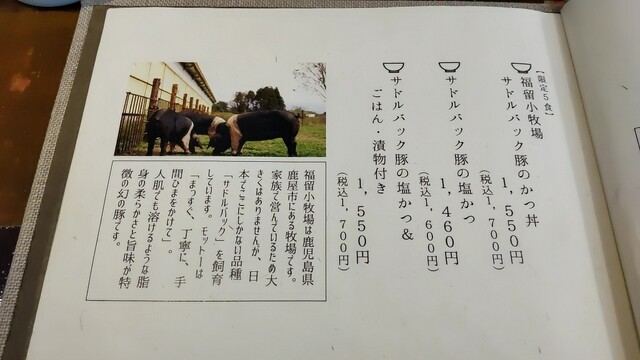 【限定5食】
福留小牧場
サドルバック豚のかつ丼
1,550円
(税込1,700円)
サドルバック豚の塩かつ
1,460円
(税込1,600円)
サドルバック豚の塩かつ&
ごはん・漬物付き
1,550円
(税込1,700円)
福留小牧場は鹿児島県
鹿屋市にある牧場です。
家族で営んでいるため大
きくはありませんが、日
本でここにしかない品種
「サドルバック」を飼育
しています。モットーは
「まっすぐ、丁寧に、手
間ひまをかけて」。
人肌でも溶けるような脂
身の柔らかさと旨味が特
徴の幻の豚です。